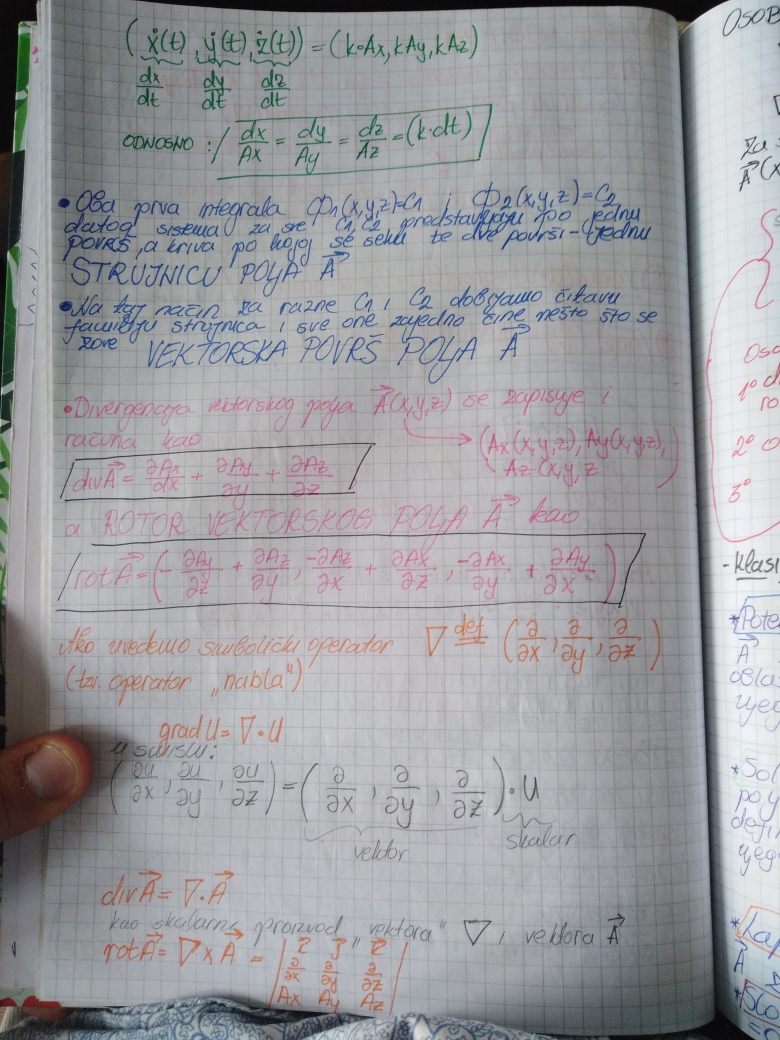 (ẋ(t), ẏ(t), ż(t)) = (k•Ax, kAy, kAz)
dx/dt dy/dt dz/dt
ODNOSNO: dx/Ax = dy/Ay = dz/Az = (k·dt)
• Oba prva integrala Φ1(x,y,z)=C1 i Φ2(x,y,z)=C2
datog sistema za sve C1, C2 predstavljaju po jednu
POVRŠ, a kriva po kojoj se seku te dve površi - jednu
STRUJNICU POLJA A⃗
• Na taj način za razne C1 i C2 dobijamo čitavu
familiju strujnica i sve one zajedno čine nešto što se
zove VEKTORSKA POVRŠ POLJA A⃗
• Divergencija vektorskog polja A⃗(x,y,z) se zapisuje i
računa kao
(Ax(x,y,z), Ay(x,y,z),
Az(x,y,z
divA⃗ = ∂Ax/dx + ∂Ay/∂y + ∂Az/∂z
a ROTOR VEKTORSKOG POLJA A⃗ kao
rotA⃗ = (-∂Ay/∂z + ∂Az/∂y, -∂Az/∂x + ∂Ax/∂z, -∂Ax/∂y + ∂Ay/∂x)
Ako uvedemo simbolički operator ∇ def= (∂/∂x, ∂/∂y, ∂/∂z)
(tzv. operator „nabla“)
gradU = ∇·U
u smislu:
(∂u/∂x, ∂u/∂y, ∂u/∂z) = (∂/∂x, ∂/∂y, ∂/∂z)·u
vektor skalar
divA⃗ = ∇·A⃗
kao skalarni proizvod „vektora“ ∇ i vektora A⃗
rotA⃗ = ∇ x A⃗ = | i⃗ j⃗ k⃗
∂/∂x ∂/∂y ∂/∂z
Ax Ay Az |
OSOB
∇
za
A⃗(x
Oso
1°
2°
3°
- klasi
* Pote
A⃗
obla
* Sol
* Lap
A⃗